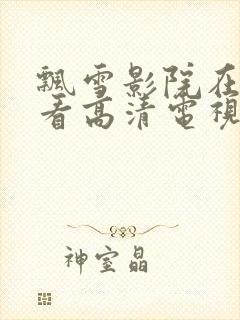 飄雪影院在
看高清電視
神室晶